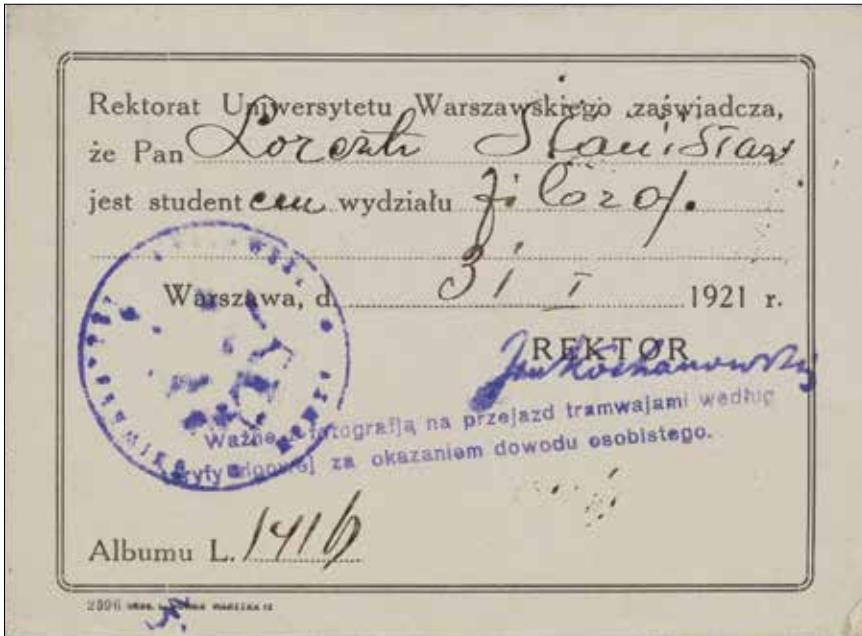 Rektorat Uniwersytetu Warszawskiego zaświadcza,
że Pan Lorentz Stanisław
jest studentem wydziału filozof.
Warszawa, d. 31 I 1921 r.
REKTOR
JanKochanowski
Ważne z fotografją na przejazd tramwajami według
taryfy ulgowej za okazaniem dowodu osobistego.
Albumu L. 1416
2396